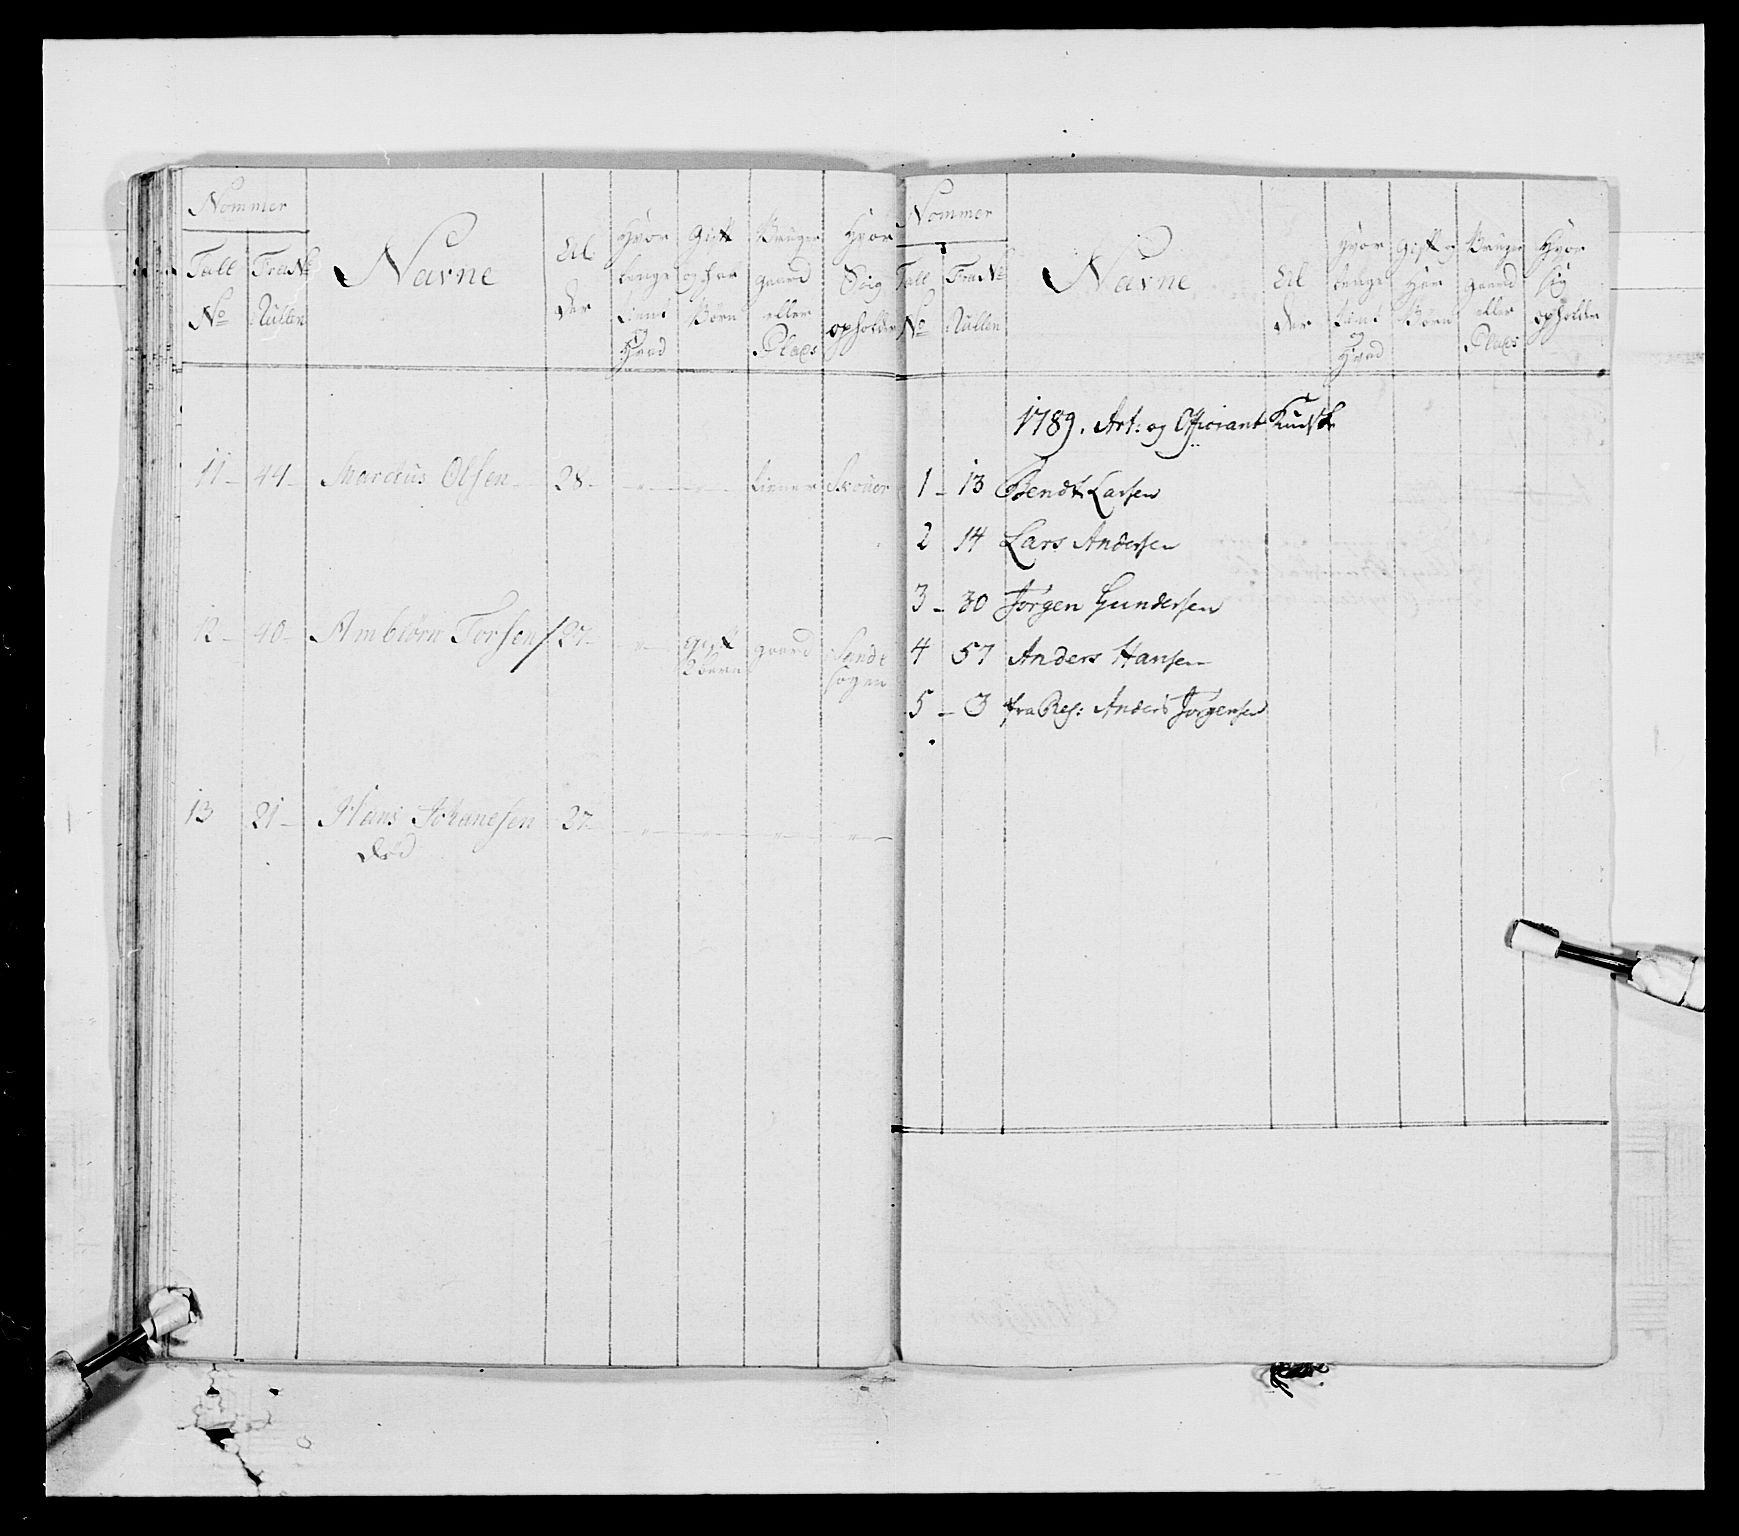 Nommer
Tall No
Fra No Rullen
Navne
Al der
Hvor lenge tient og Hvad
Gift og har Børn
Bruger gaard eller Plads
Hvor Sig opholder
11 - 44 - Marcus Olsen - 28 - " - " - tiener Skouer
12 - 40 - Ambiørn Torsen / 27 - " - gift 2 børn gaard Sande sogen
13 21 - Hans Johanesen 27 - " - " - " - " -
død
Nommer
Tall No
Fra No Rullen
Navne
Al der
Hvor lenge tient og Hvad
Gift og Har Børn
Bruger gaard eller Plads
Hvor sig opholder
1789. Art: og Officiant Kudske
1 - 13 Bendt Larsen
2 14 Lars Andersen
3 - 30 Jørgen Gundersen
4 57 Anders Hansen
5 - 3 fra Res: Anders Jørgensen